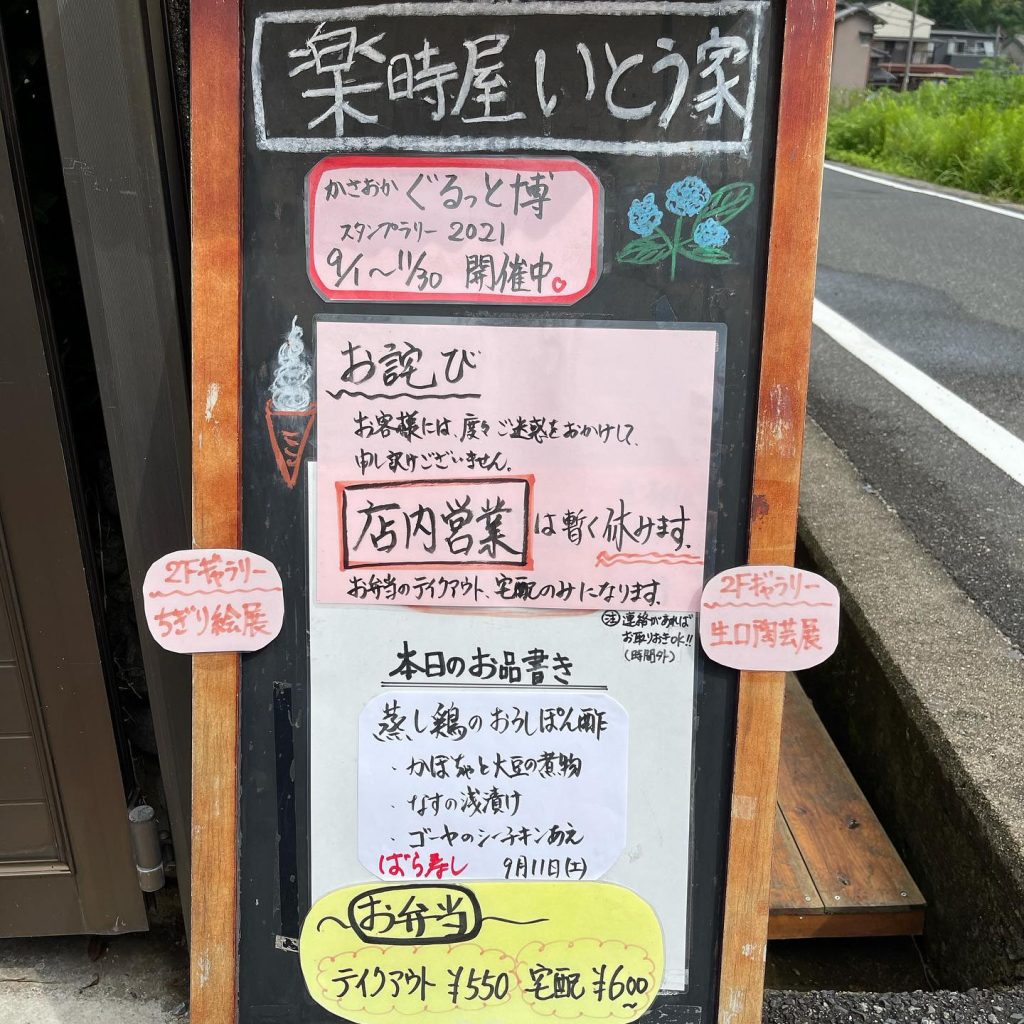 楽時屋いとう家
かさおか ぐるっと博
スタンプラリー 2021
9/1〜11/30 開催中。
お詫び
お客様には、度々ご迷惑をおかけして、
申し訳けございません。
店内営業は暫く休みます。
お弁当のテイクアウト、宅配のみになります。
2Fギャラリー
ちぎり絵展
2Fギャラリー
生口陶芸展
注 連絡があれば
お取りおきOK!!
(時間外)
本日のお品書き
蒸し鶏のおろしぽん酢
・かぼちゃと大豆の煮物
・なすの浅漬け
・ゴーヤのシーチキンあえ
ばら寿し 9月11日(土)
〜お弁当〜
テイクアウト ¥550 宅配 ¥600